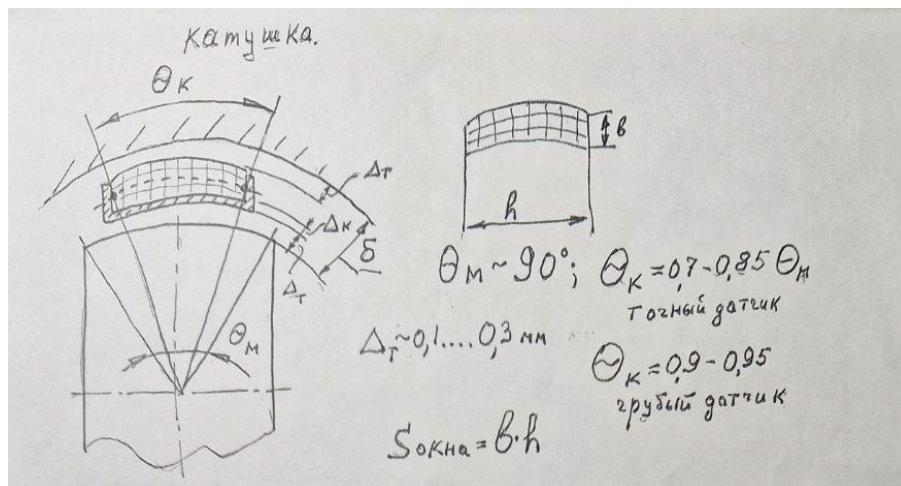 катушка.
Θк
Δт
Δк
δ
Δт
Θм
в
h
Θм ~ 90°; Θк = 0,7 - 0,85 Θм
точный датчик
Δт ~ 0,1....0,3 мм
Θк = 0,9 - 0,95
грубый датчик
Sокна = в·h